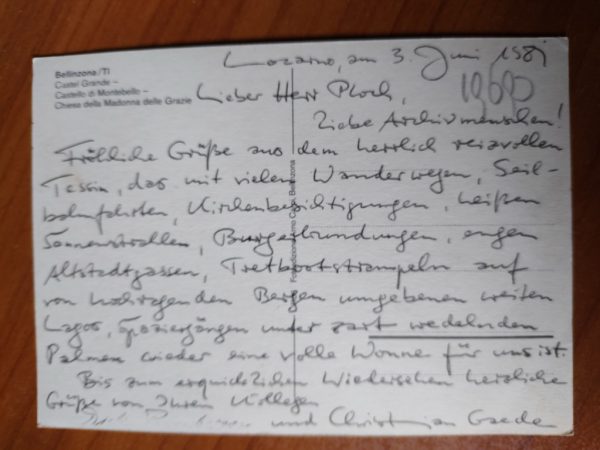 Bellinzona/TI
Castel Grande –
Castello di Montebello –
Chiesa della Madonna delle Grazie
Locarno, am 3. Juni 198
Lieber Herr Ploch,
Liebe Archivmenschen!
Fröhliche Grüße aus dem herrlich reizvollen
Tessin, das mit vielen Wanderwegen, Seil-
bahnfahrten, Kirchenbesichtigungen, heißen
Sonnenstrahlen, Burgerkundungen, engen
Altstadtgassen, Tretbootstrampeln auf
von hochragenden Bergen umgebenen weiten
Lagos, Spaziergängen unter zart wedelnden
Palmen wieder eine volle Wonne für uns ist.
Bis zum erquicklichen Wiedersehen herzliche
Grüße von Ihren Kollegen
und Christian Gaede
Bellinzona